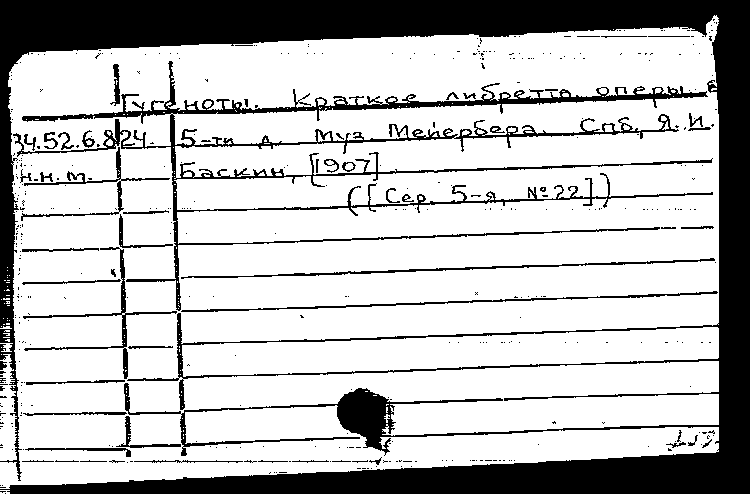 Гугеноты. Краткое либретто оперы в
34.52.6.824. 5-ти д. Муз. Мейербера. Спб., Я. И.
н.н.м. Баскин, [1907]
([Сер. 5-я, № 22])